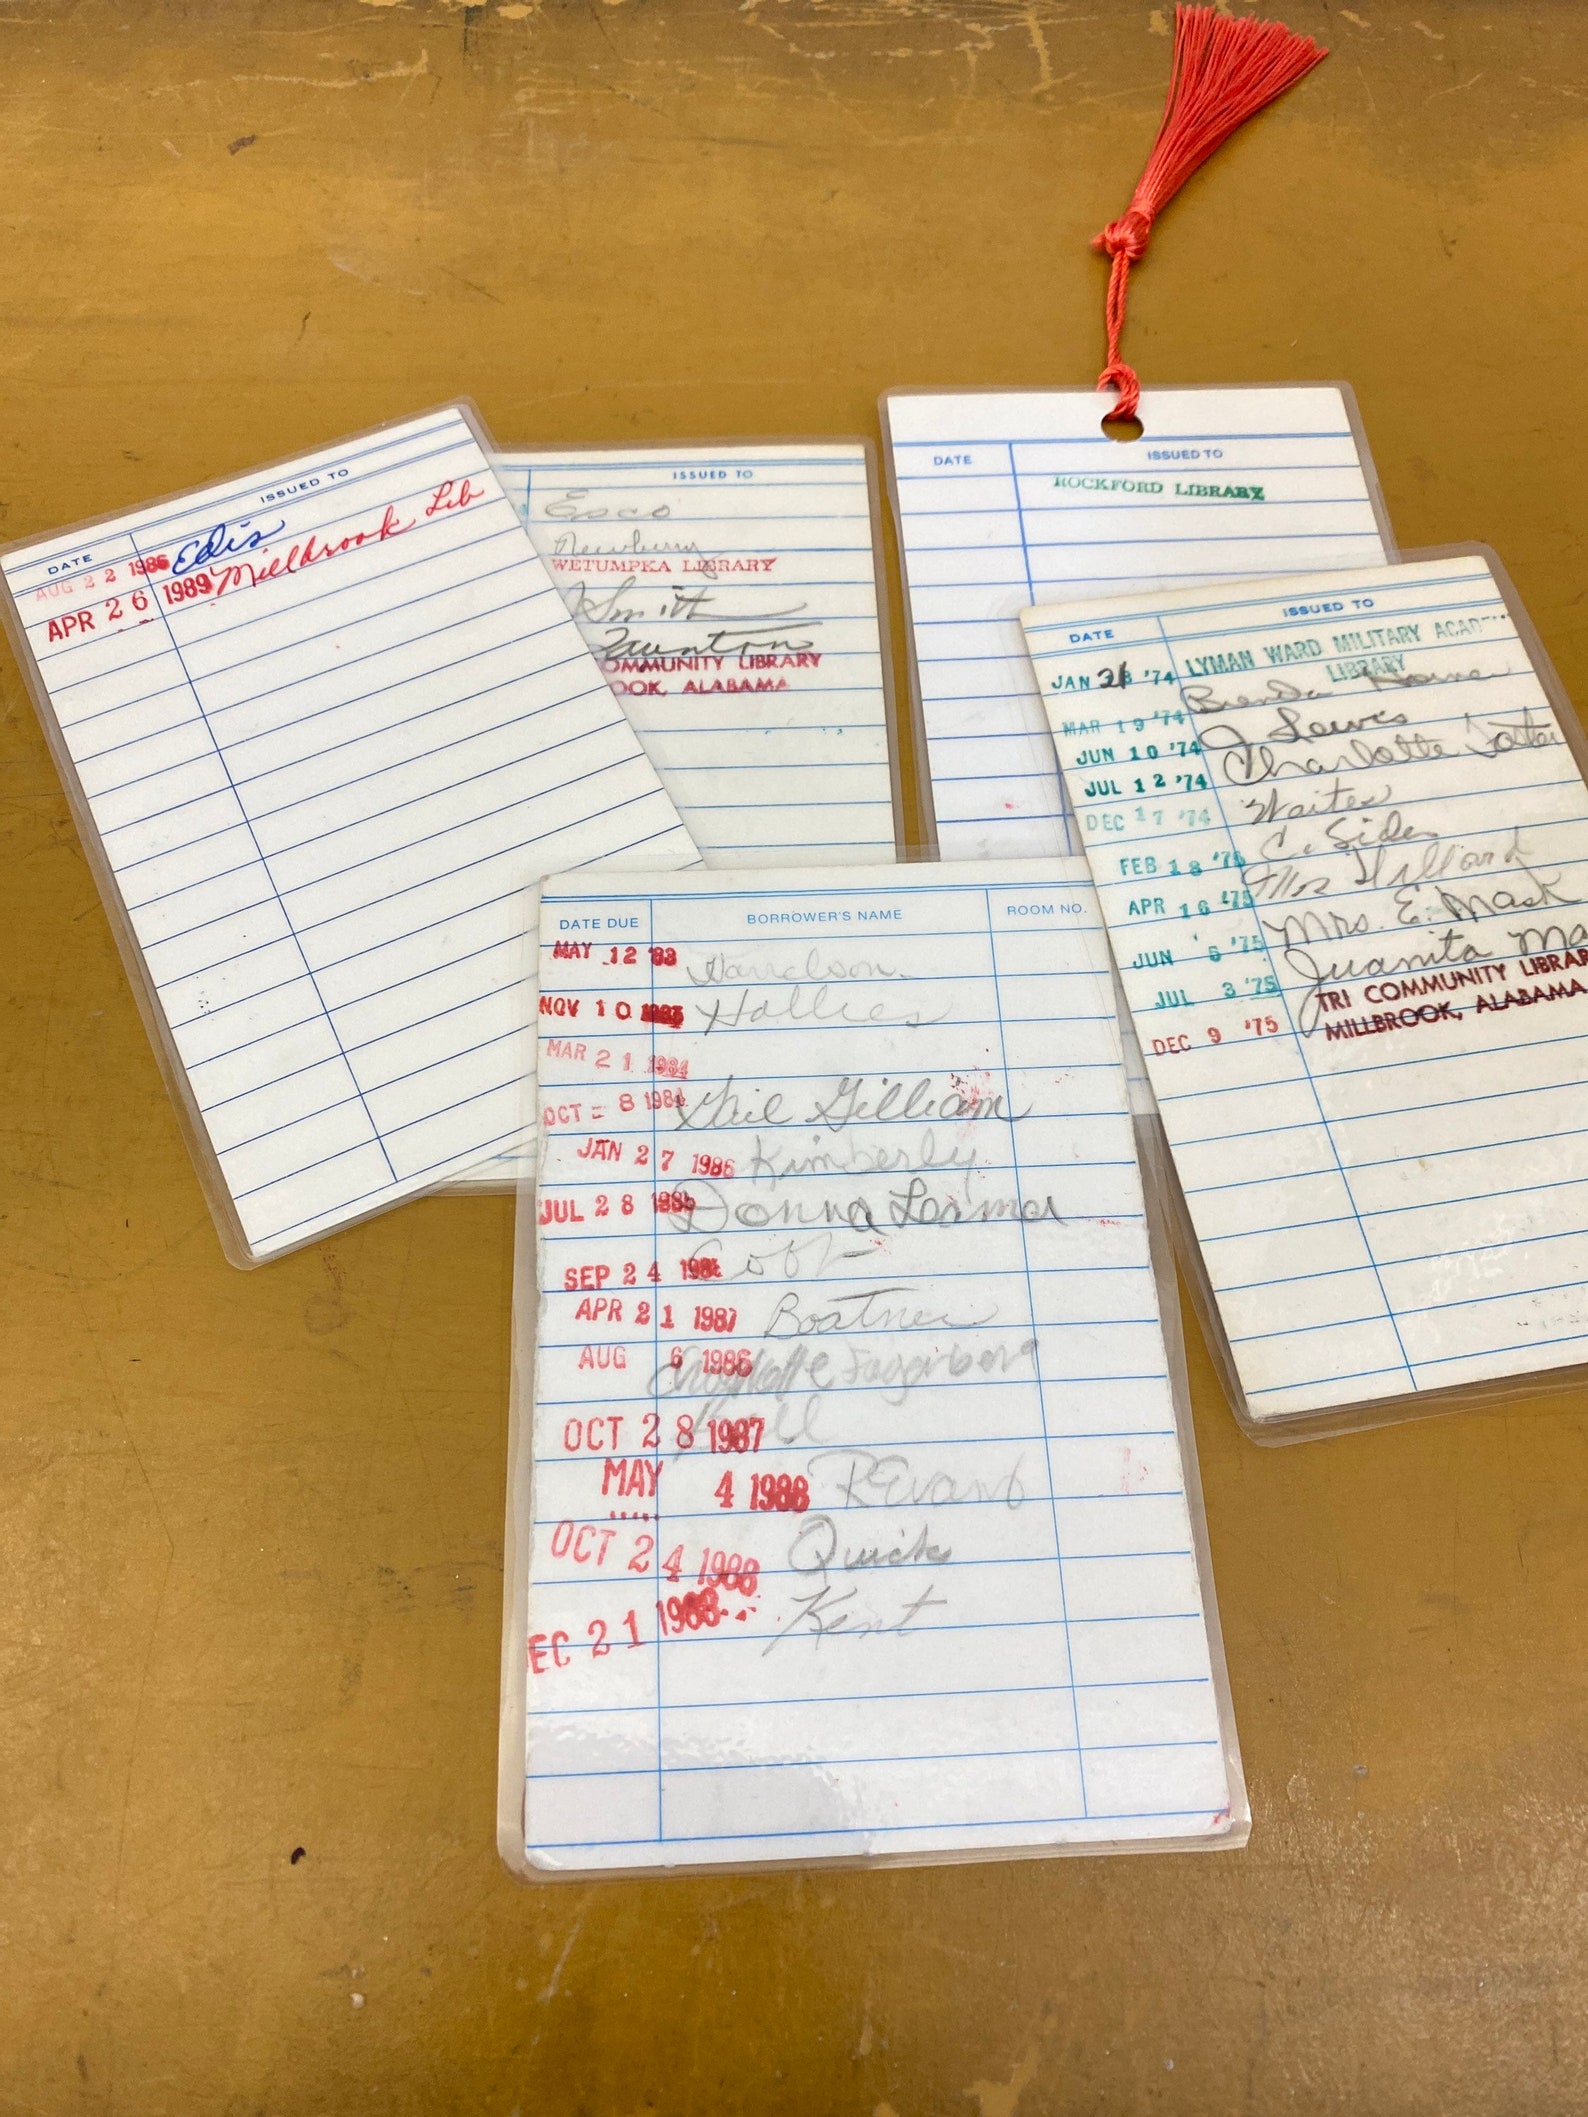 DATE ISSUED TO
AUG 22 1986 Edis
APR 26 1989 Millbrook Lib
ISSUED TO
Esco
Newberry
WETUMPKA LIBRARY
Smith
Taunton
OMMUNITY LIBRARY
OOK, ALABAMA
DATE ISSUED TO
ROCKFORD LIBRARY
DATE ISSUED TO
LYMAN WARD MILITARY ACAD
LIBRARY
JAN '74
MAR 19 '74 Brenda
JUN 10 '74 J Lewis
JUL 12 '74 Charlotte
DEC 17 '74 Waites
FEB 18 '75 C. Sides
APR 16 '75 Mrs Hilliard
JUN 5 '75 Mrs. E. Mask
JUL 3 '75 Juanita Ma
DEC 9 '75 TRI COMMUNITY LIBRAR
MILLBROOK, ALABAMA
DATE DUE BORROWER'S NAME ROOM NO.
MAY 12 '83 Harrelson
NOV 10 1983 Hollies
MAR 21 1984
OCT - 8 1984 Gail Gilliam
JAN 27 1986 Kimberly
JUL 28 1986 Donna
SEP 24 1986
APR 21 1987 Boatner
AUG 6 1986 Charlotte Fagerberg
OCT 28 1987
MAY 4 1988
OCT 24 1988 Quick
EC 21 1988 Kent